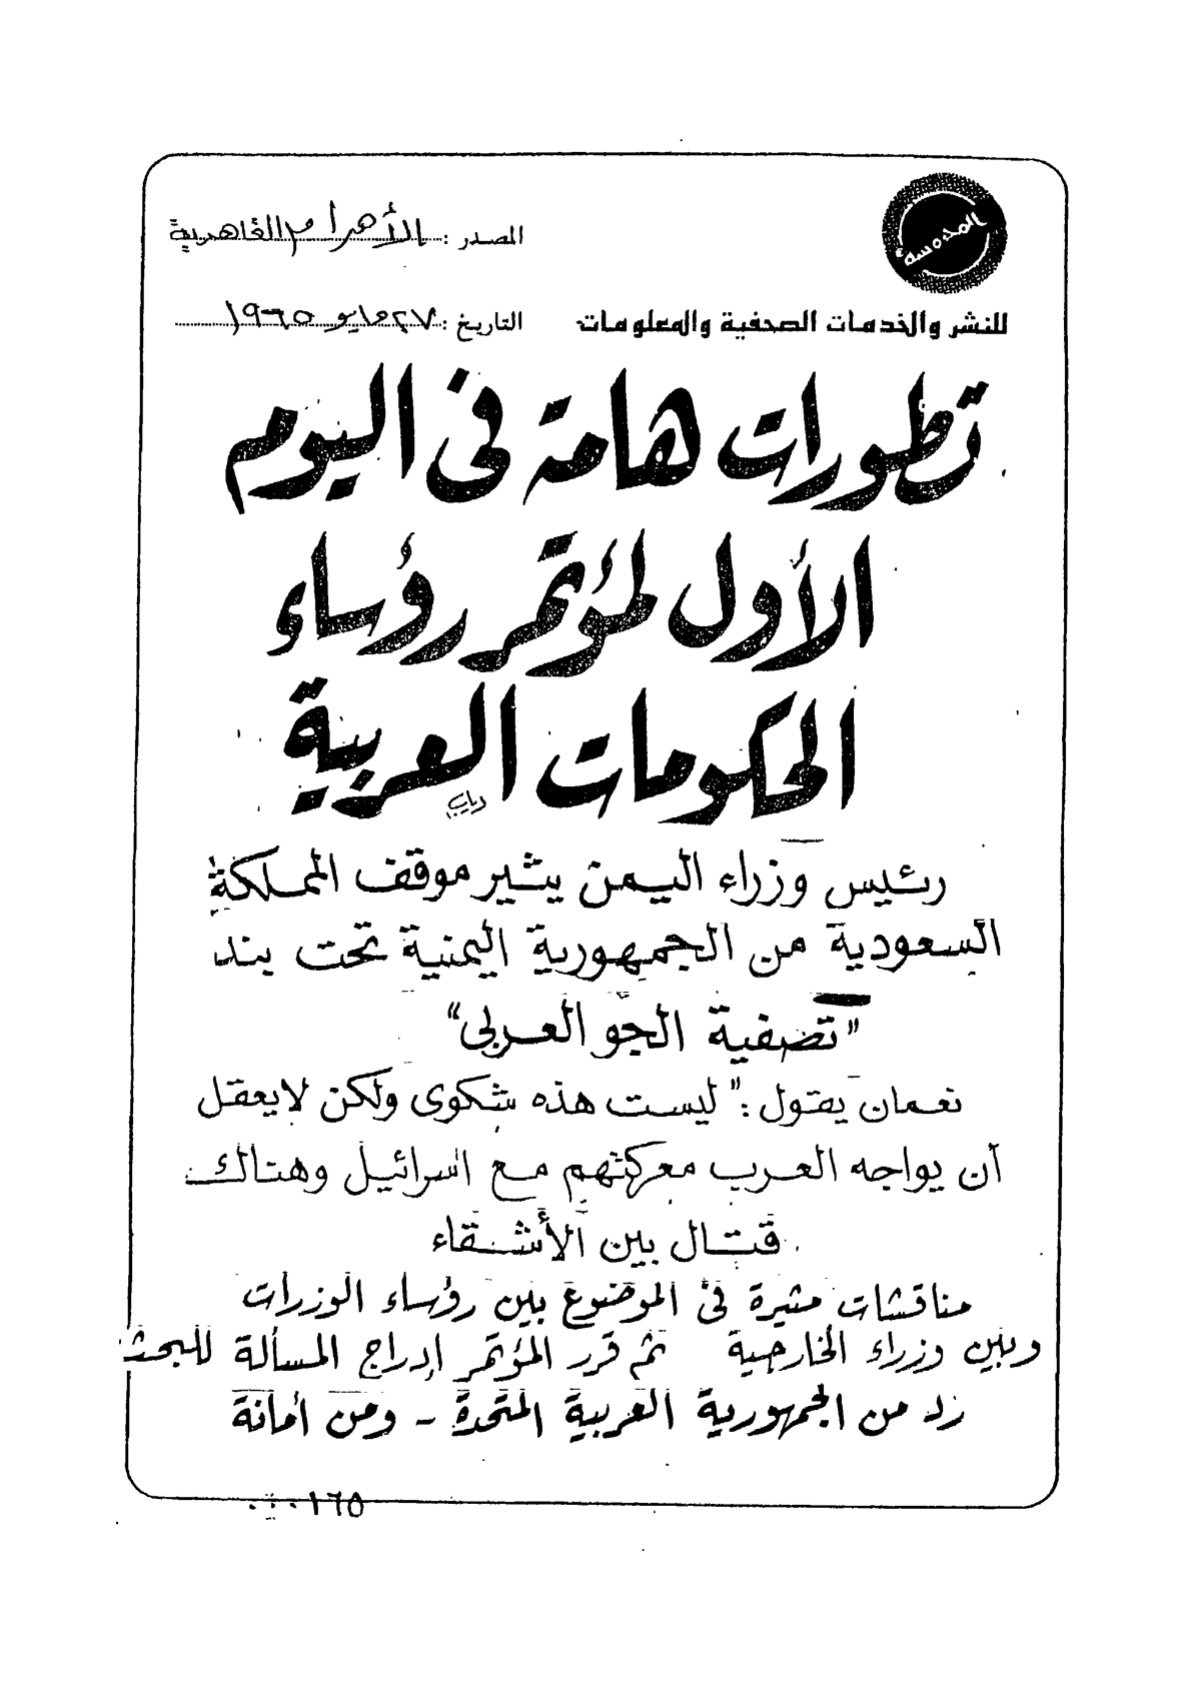 المحروسة
المصدر : الأهرام القاهرية
للنشر والخدمات الصحفية والمعلومات
التاريخ : ٢٧ مايو ١٩٦٥
تطورات هامة فى اليوم
الأول لمؤتمر رؤساء
الحكومات العربية
رئيس وزراء اليمن يثير موقف المملكة
السعودية من الجمهورية اليمنية تحت بند
"تصفية الجو العربى"
نعمان يقول : "ليست هذه شكوى ولكن لايعقل
أن يواجه العرب معركتهم مع اسرائيل وهنالك
قتال بين الأشقاء
مناقشات مثيرة فى الموضوع بين رؤساء الوزرات
وبين وزراء الخارجية ثم قرر المؤتمر إدراج المسألة للبحث
رد من الجمهورية العربية المتحدة - ومن أمانة
٠٠٠١٦٥